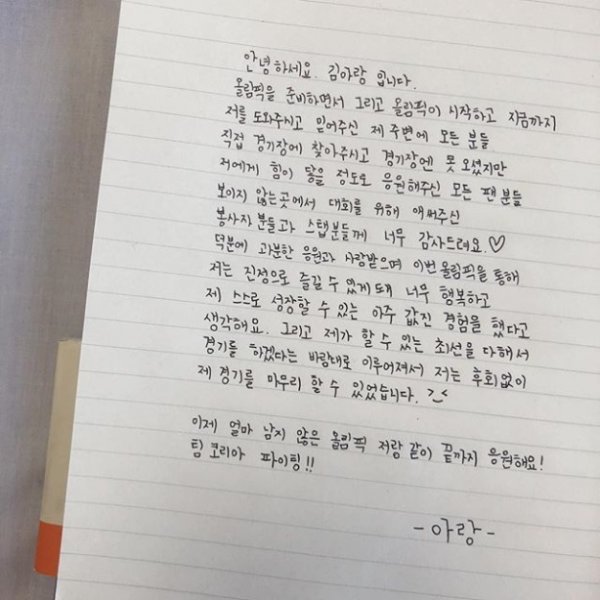 안녕하세요. 김아랑 입니다.
올림픽을 준비하면서 그리고 올림픽이 시작하고 지금까지
저를 도와주시고 믿어주신 제 주변에 모든 분들
직접 경기장에 찾아주시고 경기장엔 못 오셨지만
저에게 힘이 닿을 정도로 응원해주신 모든 팬 분들
보이지 않는곳에서 대회를 위해 애써주신
봉사자 분들과 스탭분들께 너무 감사드려요.♡
덕분에 과분한 응원과 사랑받으며 이번 올림픽을 통해
저는 진정으로 즐길 수 있게 돼 너무 행복하고
제 스스로 성장할 수 있는 아주 값진 경험을 했다고
생각해요. 그리고 제가 할 수 있는 최선을 다해서
경기를 하겠다는 바람대로 이루어져서 저는 후회없이
제 경기를 마무리 할 수 있었습니다.
이제 얼마 남지 않은 올림픽 저랑 같이 끝까지 응원해요!
팀 코리아 파이팅!!
-아랑-